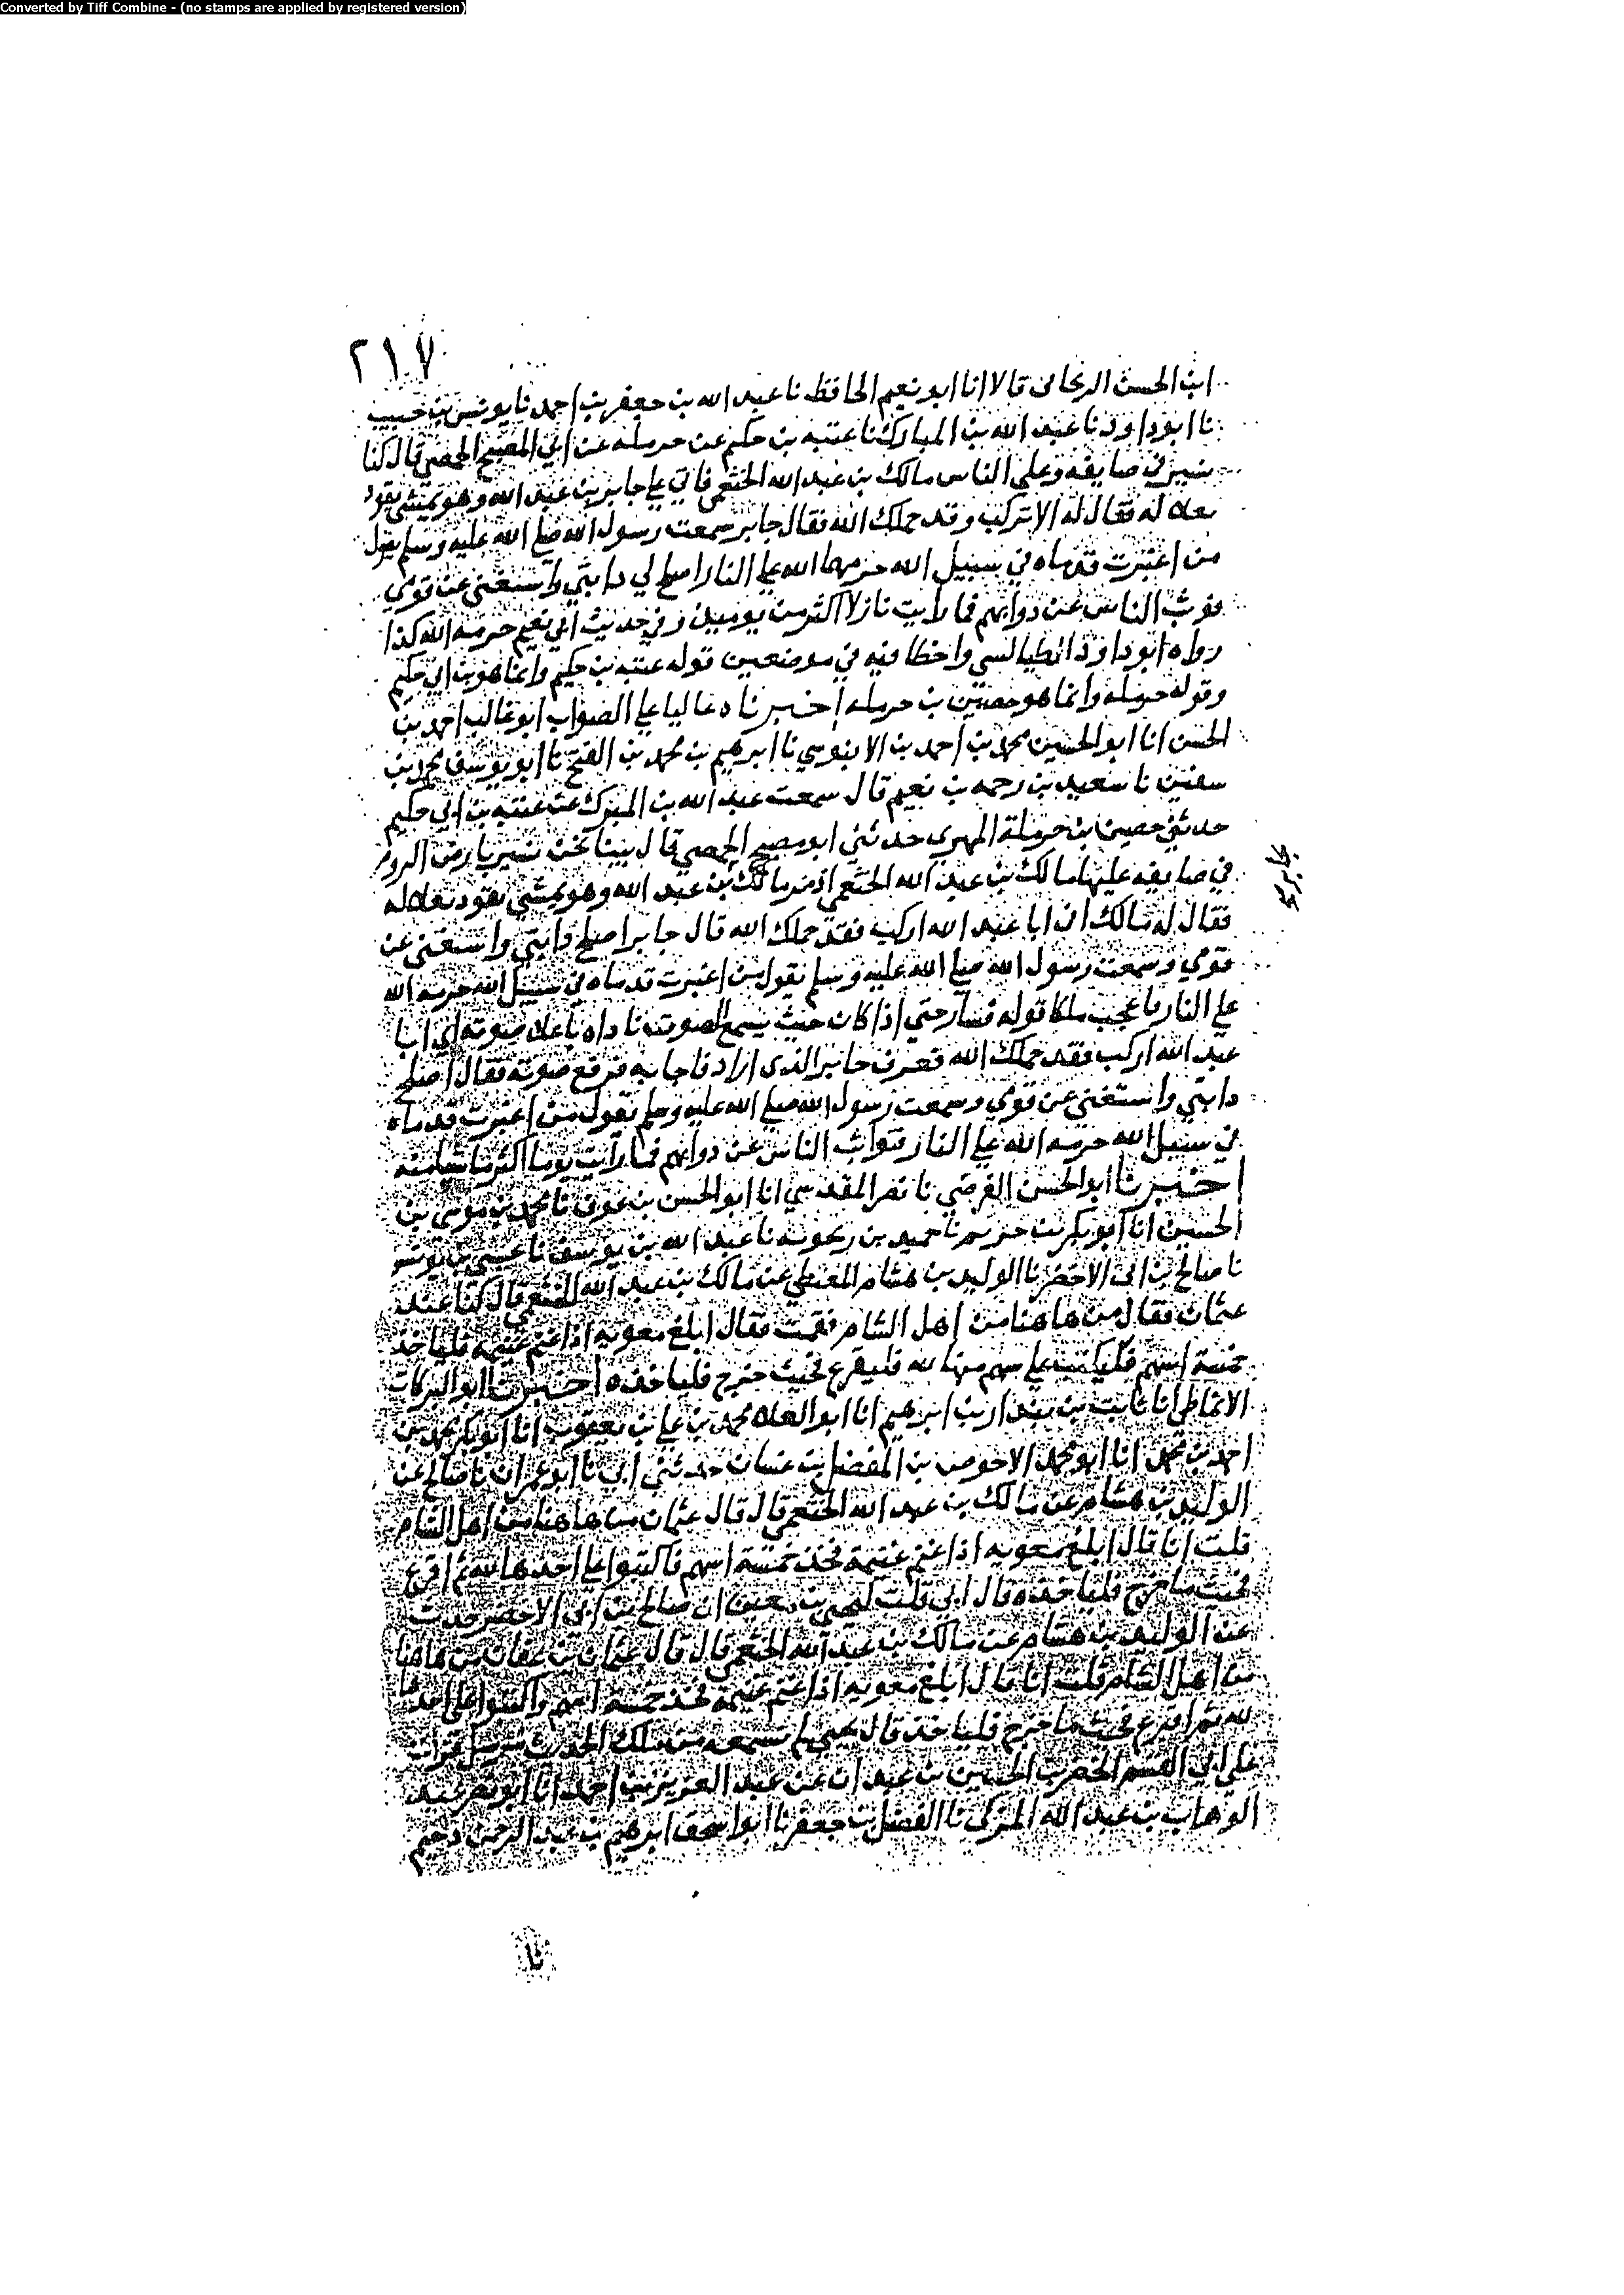 Converted by Tiff Combine - (no stamps are applied by registered version)
٢١٧
ابن الحسن قالا انا ابو نعيم الحافظ نا عبد الله بن جعفر بن احمد نا يونس بن حبيب
نا ابو داود نا عبد الله بن المبارك نا عتبه بن حكيم عن حرمله عن ابي المصبح الحمصي قال كنا
نسير في صايفه وعلي الناس مالك بن عبد الله الخثعمي فاتي علي جابر بن عبد الله وهو يمشي يقود
بغلا له فقال له الا تركب وقد حملك الله فقال جابر سمعت رسول الله صلي الله عليه وسلم يقول
من اغبرت قدماه في سبيل الله حرمهما الله علي النار اصلح لي دابتي واستغني عن قومي
فوثب الناس عن دوابهم فما رايت نازلا اكثر من يوميذ وفي حديث ابي نعيم حرمه الله كذا
رواه ابو داود الطيالسي واخطا فيه في موضعين قوله عتبه بن حكيم وانما هو بن ابي حكيم
وقوله حرمله وانما هو حصين بن حرمله اخبرناه عاليا علي الصواب ابو غالب احمد بن
الحسن انا ابو الحسين محمد بن احمد بن الابنوسي نا ابرهيم بن محمد بن الفتح نا ابو يوسف محمد بن
سفين نا سعيد بن رحمه بن نعيم قال سمعت عبد الله بن المبرك عن عتبه بن ابي حكيم
حدثني حصين بن حرملة المهري حدثني ابو مصبح الحمصي قال بينا نحن نسير بارض الروم
في صايفه عليها مالك بن عبد الله الخثعمي اذ مر مالك بن عبد الله وهو يمشي يقود بغلا له
فقال له مالك اي ابا عبد الله اركب فقد حملك الله قال جابر اصلح دابتي واستغني عن
قومي وسمعت رسول الله صلي الله عليه وسلم يقول من اغبرت قدماه في سبيل الله حرمه الله
علي النار فاعجب ملكا قوله فسار حتي اذا كان حيث يسمع الصوت ناداه باعلا صوته اي ابا
عبد الله اركب فقد حملك الله فعرف جابر الذي اراد فاجابه فرفع صوته فقال اصلح
دابتي واستغني عن قومي وسمعت رسول الله صلي الله عليه وسلم يقول من اغبرت قدماه
في سبيل الله حرمه الله علي النار فتواثب الناس عن دوابهم فما رايت يوما اكثر ماشيا منه
اخبرنا ابو الحسن الفرضي نا نصر المقدسي انا ابو الحسن بن عوف نا محمد بن موسي بن
الحسين انا ابو بكر بن خريم نا حميد بن زنجويه نا عبد الله بن يوسف نا عيسي بن يونس
نا صالح بن ابي الاخضر نا الوليد بن هشام المعيطي عن مالك بن عبد الله الخثعمي قال كنا عند
عثمان فقال من هاهنا من اهل الشام فقمت فقال ابلغ معويه اذا غنم غنيمة فلياخذ
خمسة اسهم فليكتب علي سهم منها لله فليقرع فحيث خرج فلياخذه اخبرنا ابو البركات
الانماطي انا ثابت بن بندار بن ابرهيم انا ابو العلا محمد بن علي بن يعقوب انا ابو بكر محمد بن
احمد بن محمد انا ابو محمد الاحوص بن المفضل بن غسان حدثني ابي نا ابو عمران نا صالح عن
الوليد بن هشام عن مالك بن عبد الله الخثعمي قال قال عثمان من هاهنا من اهل الشام
قلت انا قال ابلغ معويه اذا غنم غنيمة فخذ خمسة اسهم فاكتبوا علي احدها لله ثم اقرع
فحيث ما خرج فلياخذه قال ابي قلت ليحيي بن معين ان صالح بن ابي الاخضر حدث
عن الوليد بن هشام عن مالك بن عبد الله الخثعمي قال قال عثمان بن عفان من هاهنا
من اهل الشام قلت انا قال ابلغ معويه اذا غنم غنيمة فخذ خمسة اسهم واكتبوا علي احدها
لله ثم اقرع فحيث ما خرج فلياخذ قال يحيي لم يسمعه من ملك الحديث مرسل قرات
علي ابي القسم الخضر بن الحسين بن عبدان عن عبد العزيز بن احمد انا ابو نصر عبد
الوهاب بن عبد الله المزكي نا الفضل بن جعفر نا ابو اسحق ابرهيم بن عبد الرحمن دحيم
نا